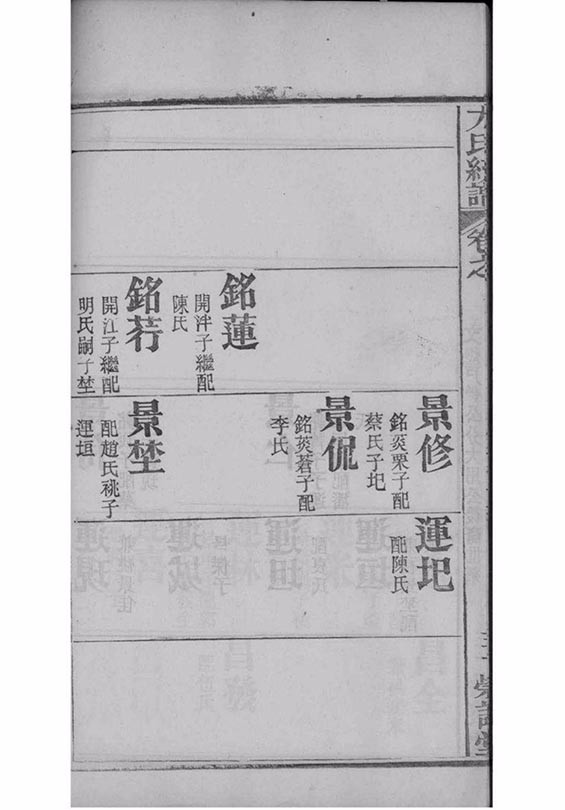 方氏續譜
卷之
銘蓮
開泮子繼配
陳氏
銘荇
開江子繼配
明氏嗣子埜
景修
銘炎栗子配
蔡氏子圯
景侃
銘蒼子配
李氏
景埜
配趙氏祧子
運垣
運圯
配陳氏